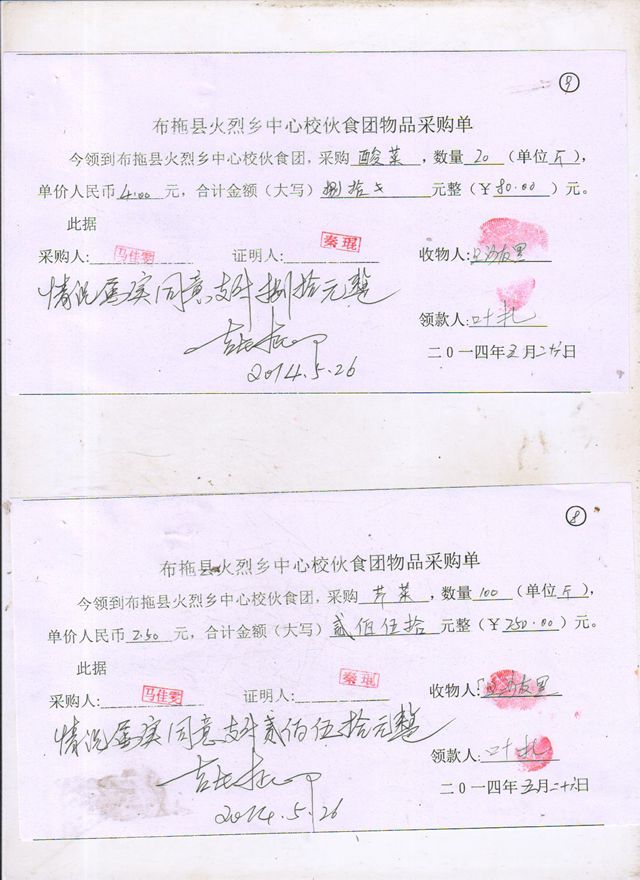 9
布拖县火烈乡中心校伙食团物品采购单
今领到布拖县火烈乡中心校伙食团，采购 酸菜 ，数量 20 （单位 斤），
单价人民币 4.00 元，合计金额（大写） 捌拾 元整（￥80.00）元。
此据
采购人： 马佳雯 证明人： 秦琨 收物人：
情况属实同意支付捌拾元整
领款人：叶扎
2014.5.26
二０一四年五月二十六日
8
布拖县火烈乡中心校伙食团物品采购单
今领到布拖县火烈乡中心校伙食团，采购 芹菜 ，数量 100 （单位 斤），
单价人民币 2.50 元，合计金额（大写） 贰佰伍拾 元整（￥250.00）元。
此据
采购人： 马佳雯 证明人： 秦琨 收物人：
情况属实同意支付贰佰伍拾元整
领款人：叶扎
2014.5.26
二０一四年五月二十六日